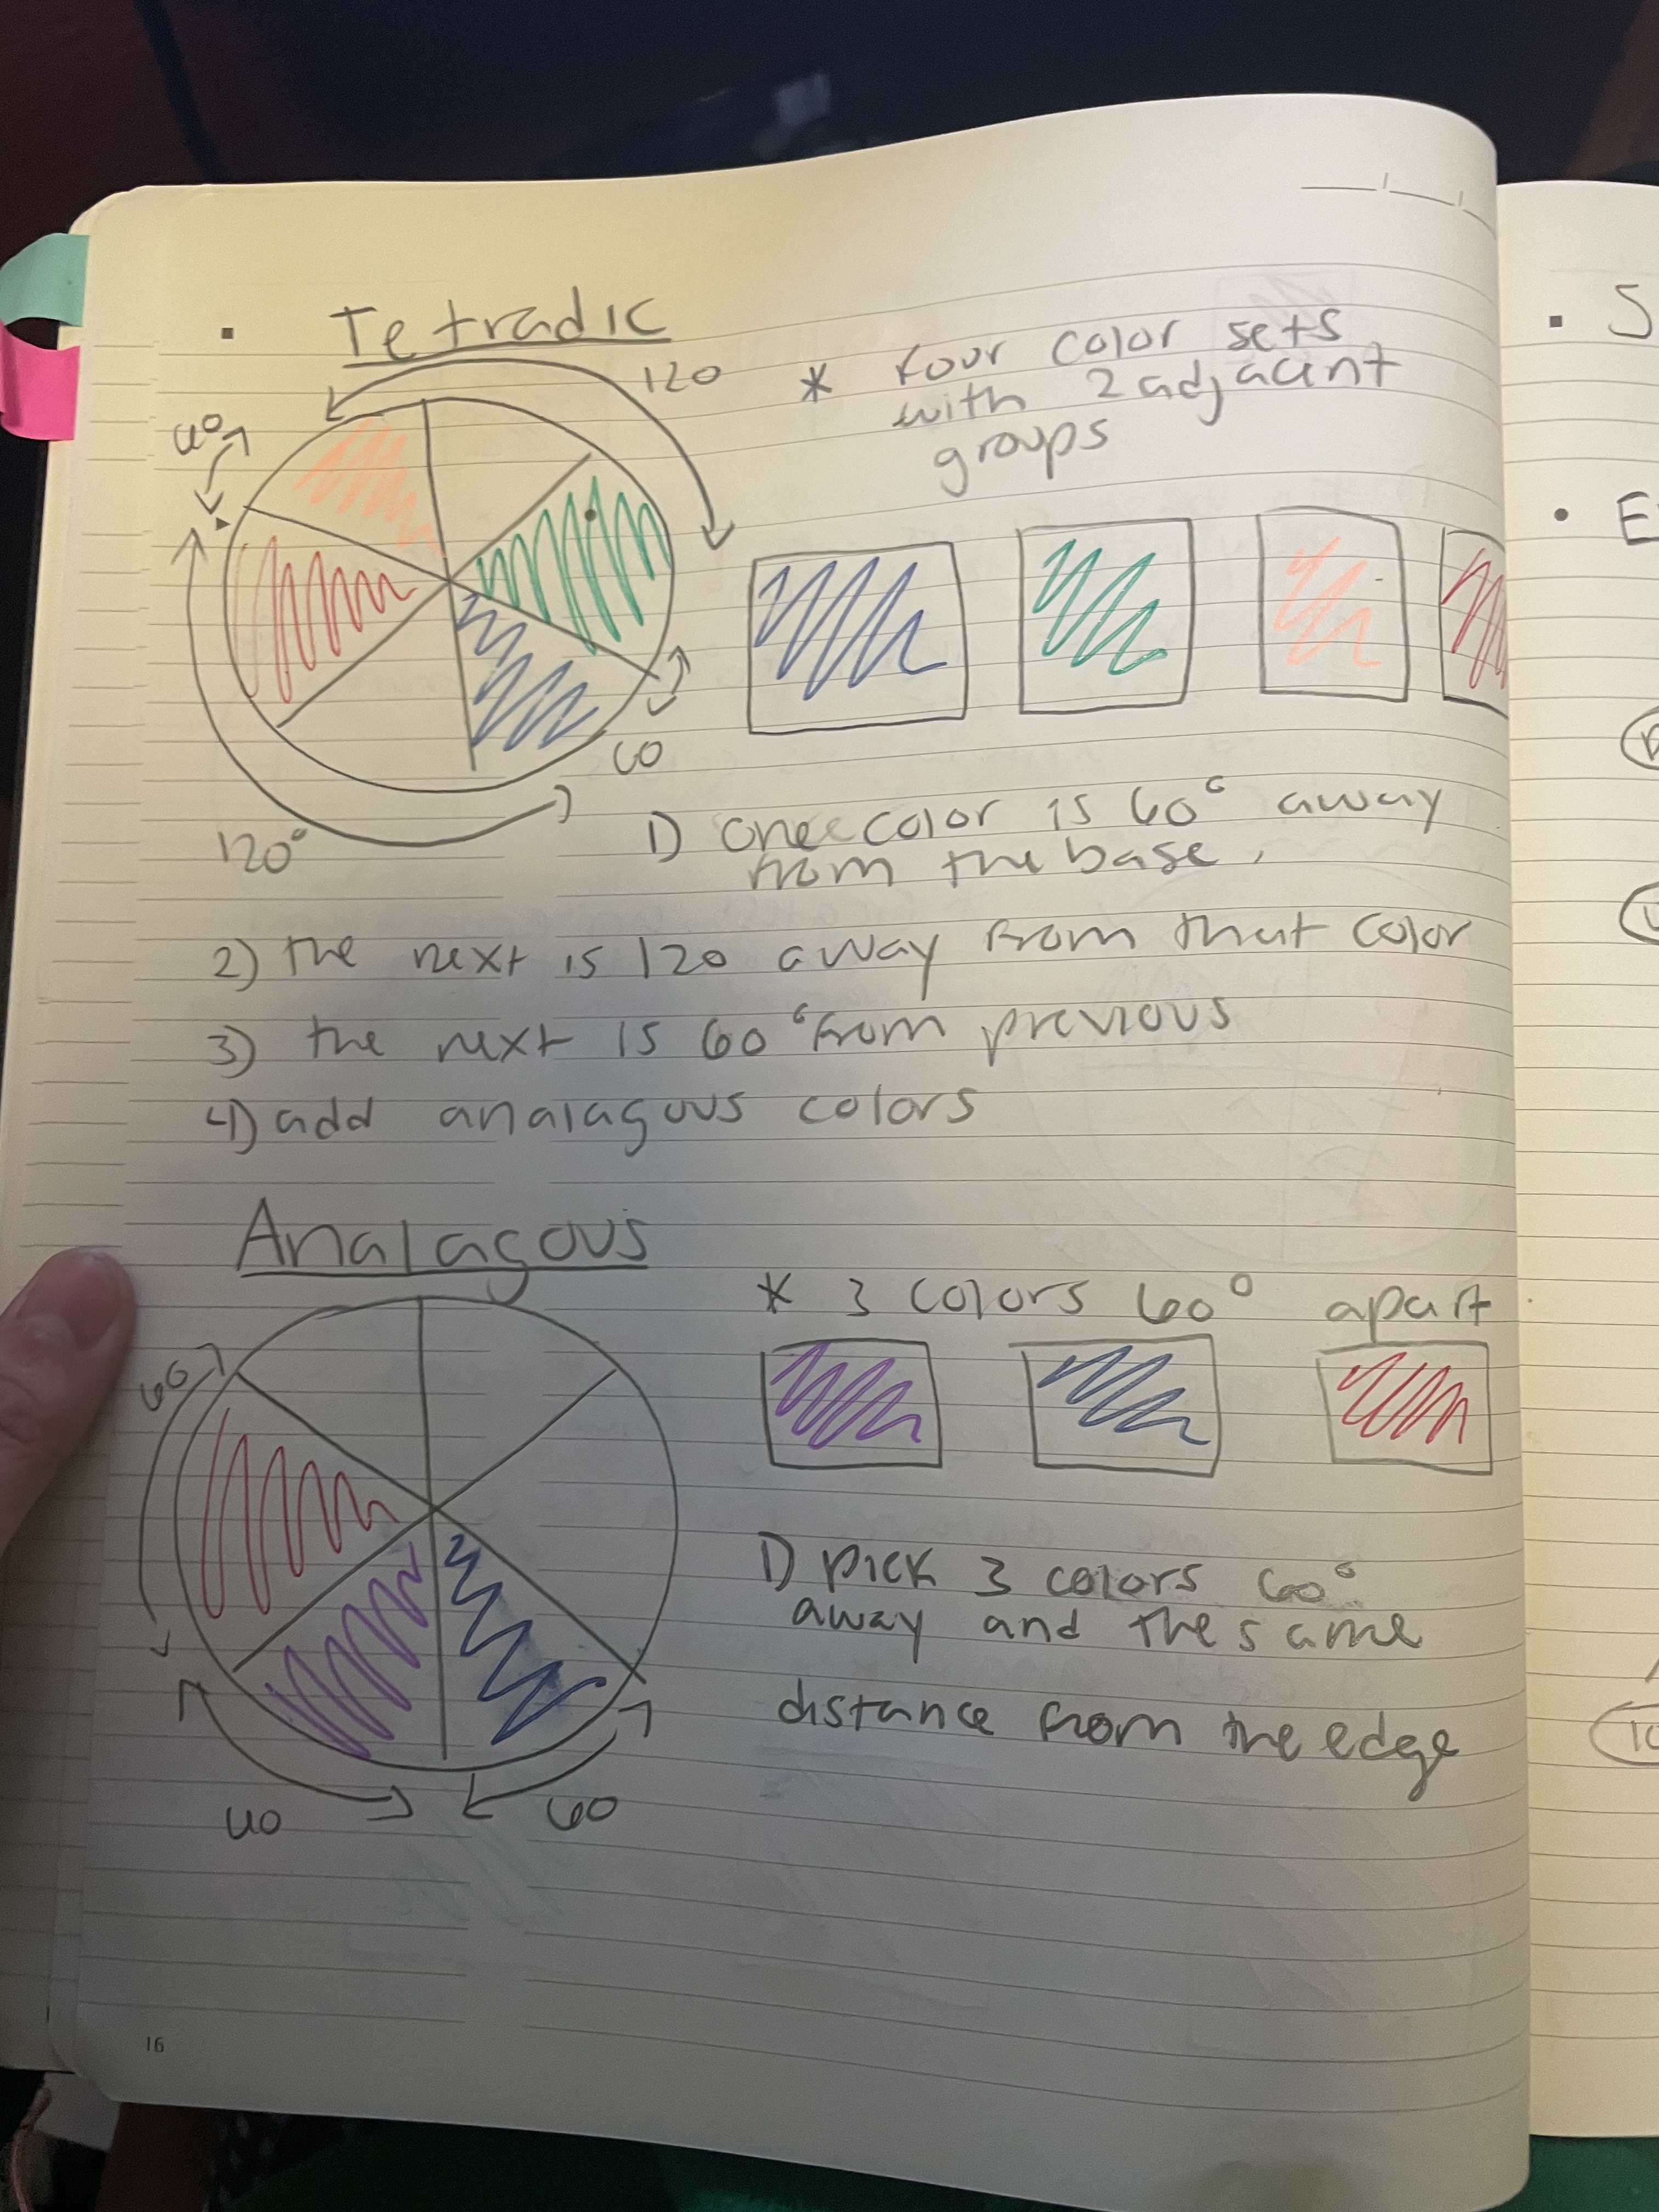 Tetradic
120
60
* four color sets
with 2 adjacent
groups
60
120°
1) one color is 60° away
from the base.
2) the next is 120 away from that color
3) the next is 60° from previous
4) add analagous colors
Analagous
* 3 colors 60° apart
60
1) pick 3 colors 60°
away and the same
distance from the edge
60
60
16
S
E